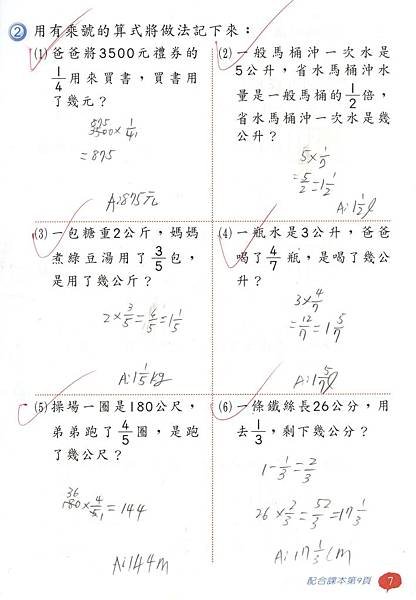 ② 用有乘號的算式將做法記下來：
(1) 爸爸將3500元禮券的
1/4用來買書，買書用
了幾元？
875
3500×1/4
=875
A:875元
(2) 一般馬桶沖一次水是
5公升，省水馬桶沖水
量是一般馬桶的1/2倍，
省水馬桶沖一次水是幾
公升？
5×1/2
=5/2=1 1/2
A:1 1/2 l
(3) 一包糖重2公斤，媽媽
煮綠豆湯用了3/5包，
是用了幾公斤？
2×3/5=6/5=1 1/5
A:1 1/5 kg
(4) 一瓶水是3公升，爸爸
喝了4/7瓶，是喝了幾公
升？
3×4/7
=12/7=1 5/7
A:1 5/7 l
(5) 操場一圈是180公尺，
弟弟跑了4/5圈，是跑
了幾公尺？
36
180×4/5=144
A:144m
(6) 一條鐵絲長26公分，用
去1/3，剩下幾公分？
1-1/3=2/3
26×2/3=52/3=17 1/3
A:17 1/3 cm
配合課本第9頁
7